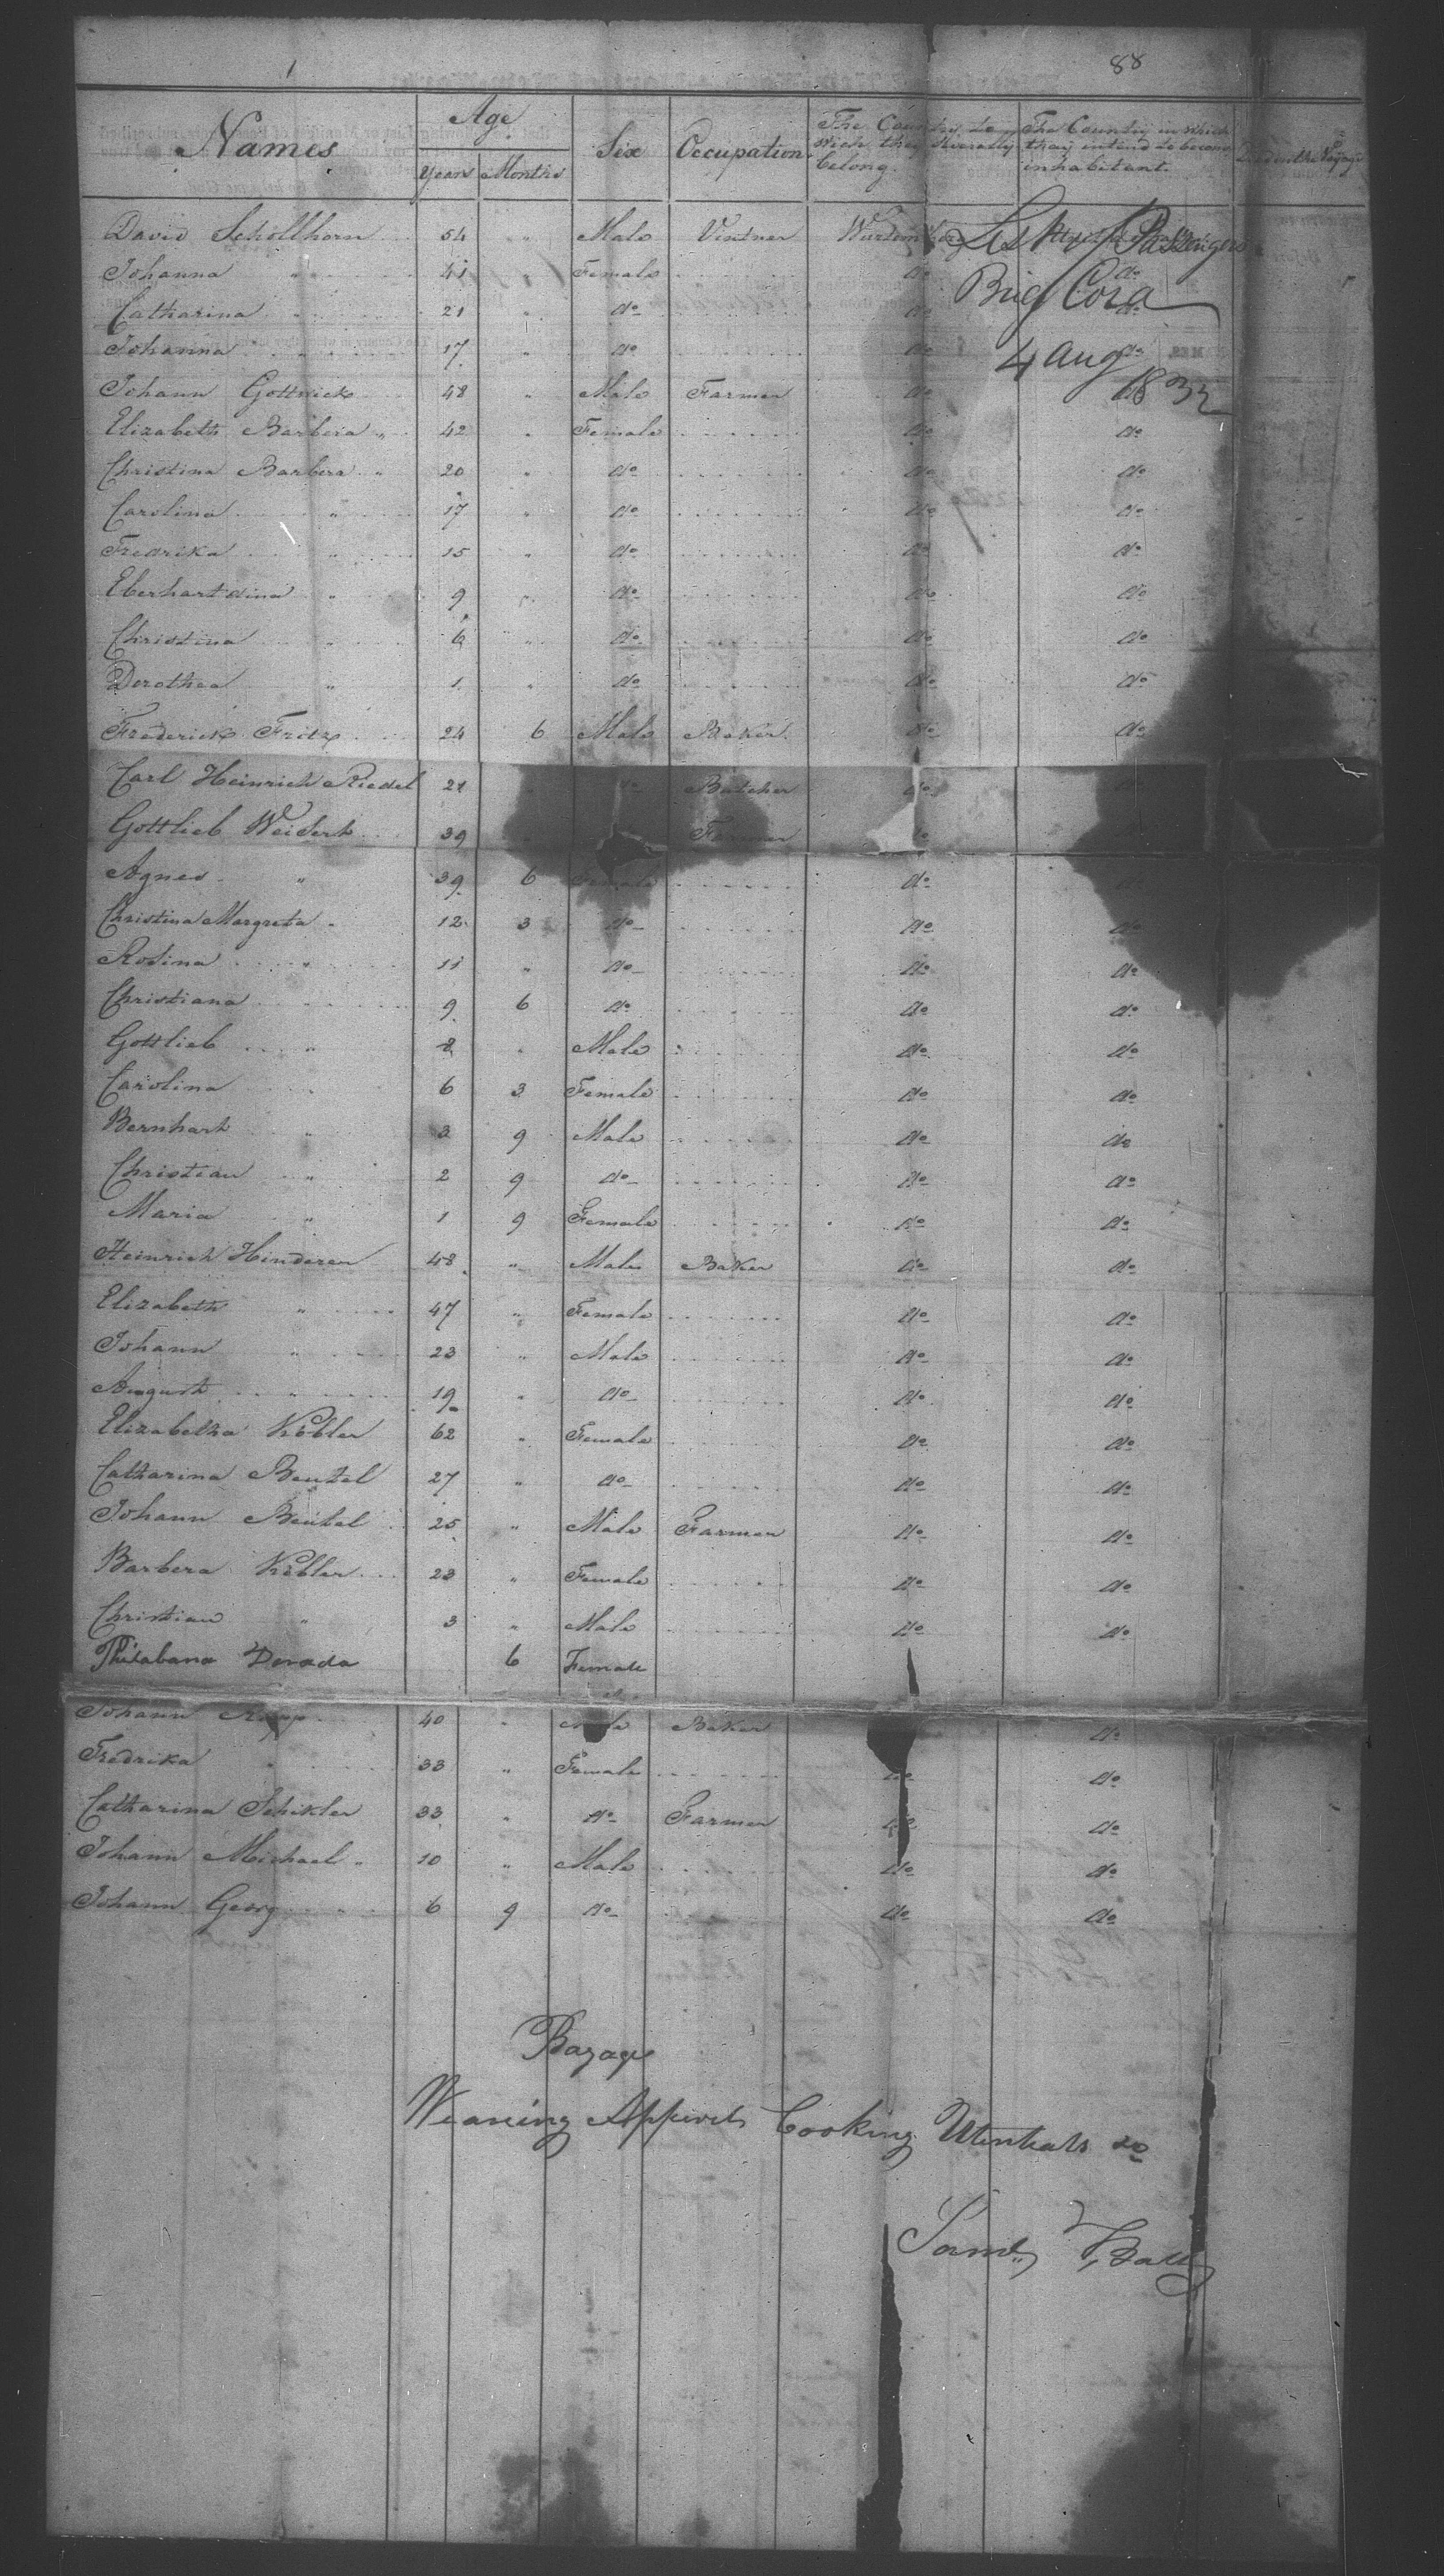 1
88
Names Age Sex Occupation The Country to The Country in which
wich they Severally they intend to become
Years Months belong. inhabitant. Died on the Voyage
David Schöllhorn 54 " Male Vintner Würtemberg List of Passengers
Johanna " 41 " Female do
Catharina " 21 " do do Brig Cora
Johanna 17 " do do 4 Aug do
Johann Gottrick 48 " Male Farmer do 1832
Elizabeth Barbera " 42 " Female do do
Christina Barbera " 20 " do do do
Carolina " 17 " do do do
Fredrika " 15 " do do do
Eberhartdina " 9 " do do do
Christina " 6 " do do do
Dorothea " 1 " do do do
Frederick Fritz 24 6 Male Baker do do
Carl Heinrich Riedel 21 do Butcher do
Gottlieb Weidert 39 Farmer do
Agnes " 39 6 Female do do
Christina Margreta " 12 3 do do do
Rosina " 11 " do do do
Christiana 9 6 do do do
Gottlieb " 8 " Male do do
Carolina " 6 3 Female do do
Bernhart " 3 9 Male do do
Christian " 2 9 do do do
Maria " 1 9 Female do do
Heinrich Hinderer 48 " Male Baker do do
Elizabeth " 47 " Female do do
Johann " 23 " Male do do
August " 19 " do do do
Elizabetha Kobler 62 " Female do do
Catharina Beutel 27 " do do do
Johann Beutel 25 " Male Farmer do do
Barbera Kobler 23 " Female do do
Christian " 3 " Male do do
Dorada 6 Female
Johann Rapp 40 " Male Baker do
Fredrika " 33 " Female do do
Catharina Schikler 33 " do Farmer do do
Johann Michael " 10 " Male do do
Johann Georg " 6 9 do do do
Bagage
Wearing Apperels Cooking Utenhals do
Saml Batty